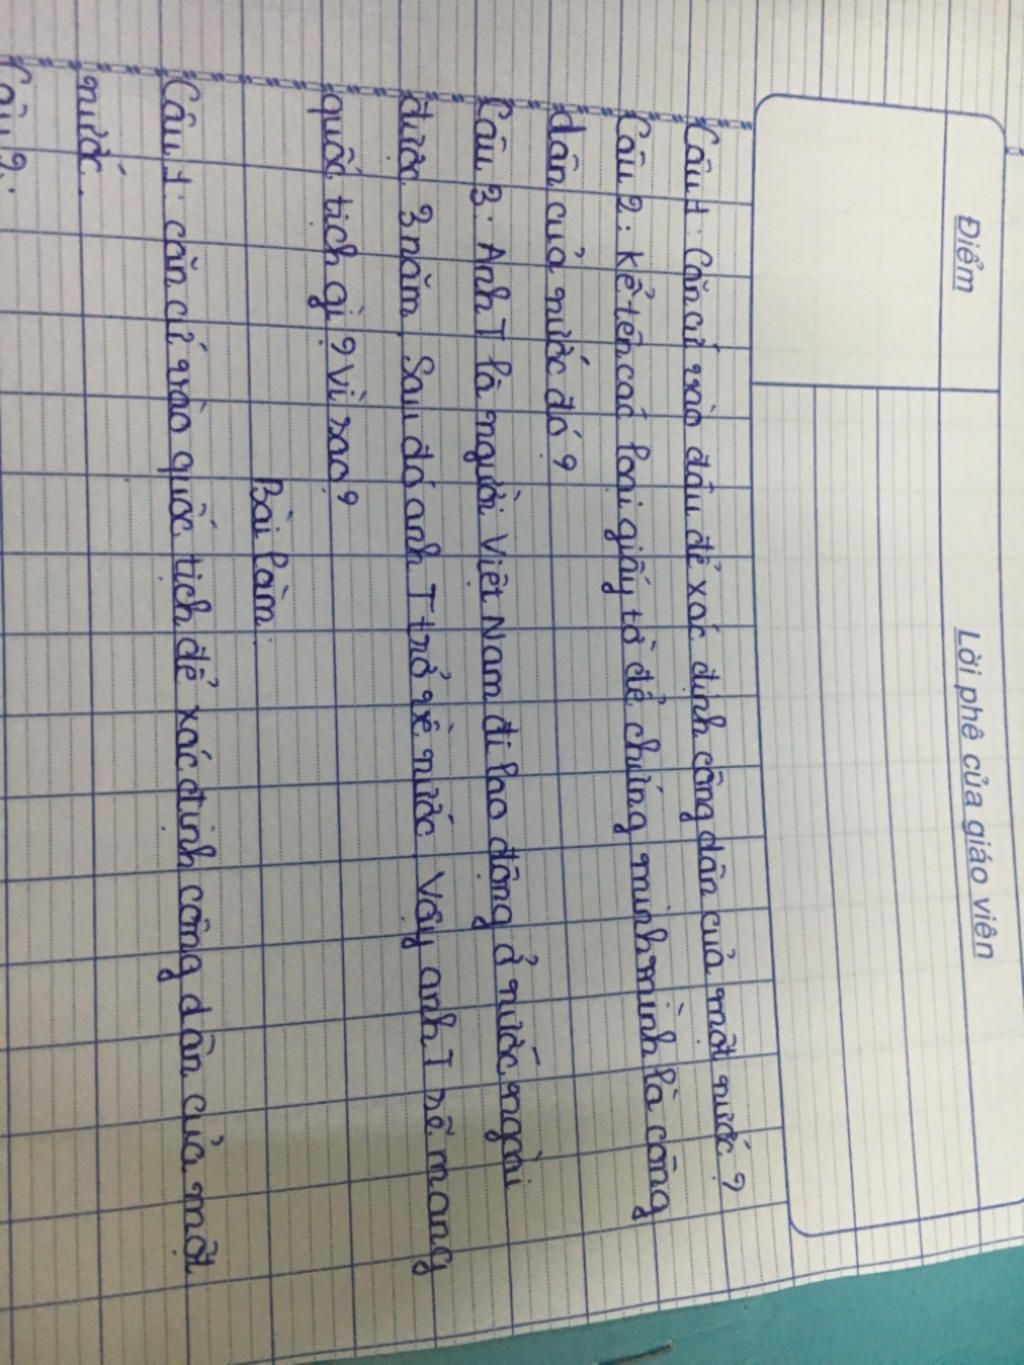 Điểm
Lời phê của giáo viên
Câu 1: Căn cứ vào đâu để xác định công dân của một nước?
Câu 2: Kể tên các loại giấy tờ để chứng minh mình là công
dân của nước đó?
Câu 3: Anh T là người Việt Nam đi lao động ở nước ngoài
được 3 năm. Sau đó anh T trở về nước. Vậy anh T sẽ mang
quốc tịch gì? Vì sao?
Bài làm:
Câu 1: căn cứ vào quốc tịch để xác định công dân của một
nước.
Câu 2: